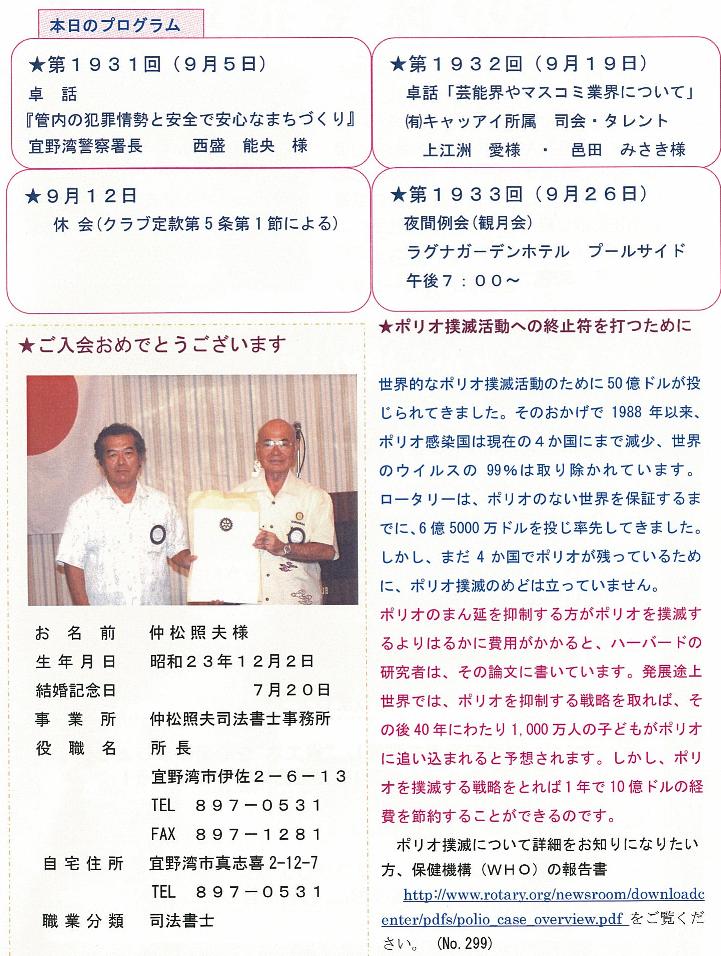 本日のプログラム
★第１９３１回（９月５日）
卓　話
『管内の犯罪情勢と安全で安心なまちづくり』
宜野湾警察署長　　　西盛　能央　様
★第１９３２回（９月１９日）
卓話「芸能界やマスコミ業界について」
㈲キャッアイ所属　司会・タレント
上江洲　愛様　・　邑田　みさき様
★９月１２日
休 会(クラブ定款第５条第１節による)
★第１９３３回（９月２６日）
夜間例会(観月会)
ラグナガーデンホテル　プールサイド
午後７：００～
★ご入会おめでとうございます
お　名　前　　仲松照夫様
生年月日　　昭和２３年１２月２日
結婚記念日　　　　　　７月２０日
事　業　所　　仲松照夫司法書士事務所
役　職　名　　所 長
宜野湾市伊佐２－６－１３
TEL　８９７－０５３１
FAX　８９７－１２８１
自宅住所　　宜野湾市真志喜2-12-7
TEL　８９７－０５３１
職業分類　　司法書士
★ポリオ撲滅活動への終止符を打つために
世界的なポリオ撲滅活動のために50億ドルが投
じられてきました。そのおかげで 1988 年以来、
ポリオ感染国は現在の４か国にまで減少、世界
のウイルスの 99%は取り除かれています。
ロータリーは、ポリオのない世界を保証するま
でに、6億5000万ドルを投じ率先してきました。
しかし、まだ 4 か国でポリオが残っているため
に、ポリオ撲滅のめどは立っていません。
ポリオのまん延を抑制する方がポリオを撲滅す
るよりはるかに費用がかかると、ハーバードの
研究者は、その論文に書いています。発展途上
世界では、ポリオを抑制する戦略を取れば、そ
の後40年にわたり1,000万人の子どもがポリオ
に追い込まれると予想されます。しかし、ポリ
オを撲滅する戦略をとれば1年で10億ドルの経
費を節約することができるのです。
ポリオ撲滅について詳細をお知りになりたい
方、保健機構（ＷＨＯ）の報告書
http://www.rotary.org/newsroom/downloadc
enter/pdfs/polio_case_overview.pdf をご覧くだ
さい。 (No.299)